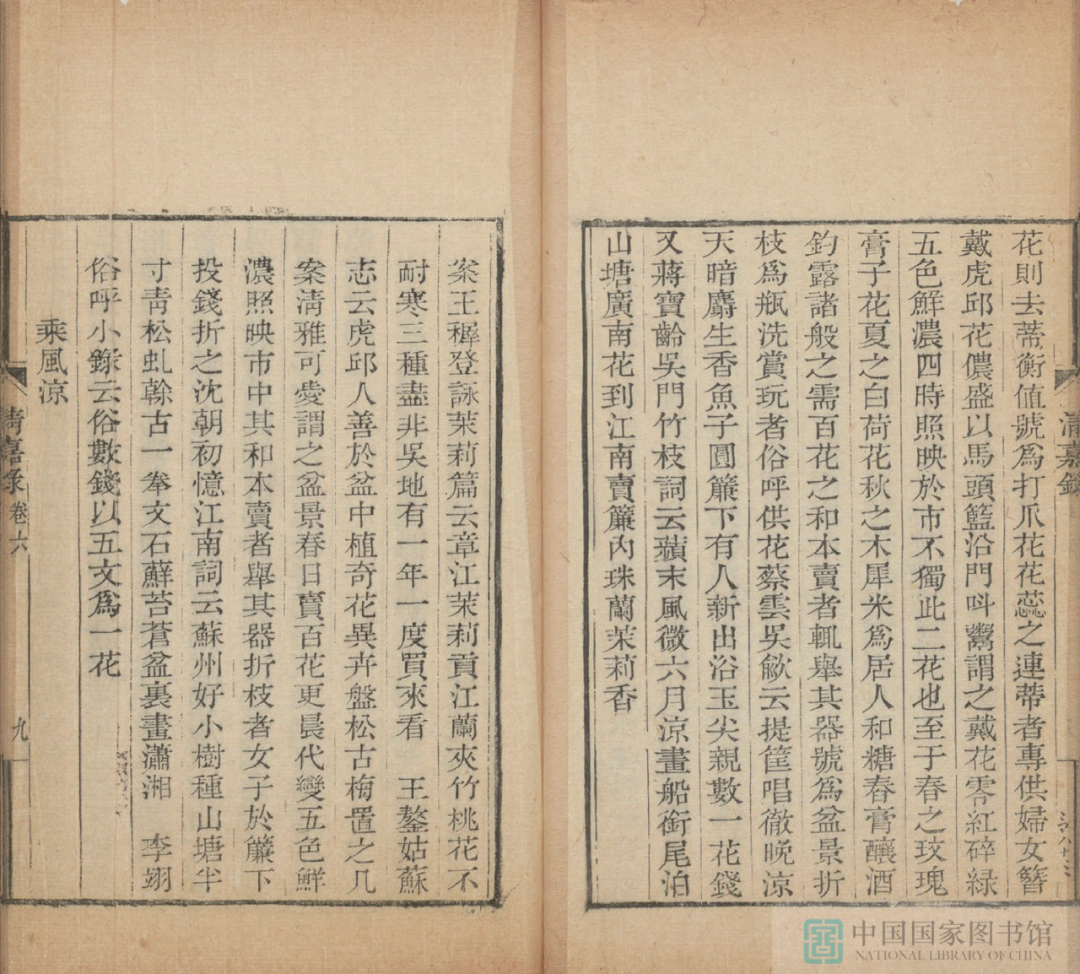 花則去蒂衡值號爲打爪花花蕊之連蒂者專供婦女簪
戴虎邱花儂盛以馬頭籃沿門呌鬻謂之戴花零紅碎綠
五色鮮濃四時照映於市不獨此二花也至于春之玫瑰
膏子花夏之白荷花秋之木犀米爲居人和糖舂膏釀酒
釣露諸般之需百花之和本賣者輒舉其器號爲盆景折
枝爲瓶洗賞玩者俗呼供花蔡雲吳歈云提筐唱徹晚涼
天暗麝生香魚子圓簾下有人新出浴玉尖親數一花錢
又蔣寶齡吳門竹枝詞云蘋末風微六月涼畫船銜尾泊
山塘廣南花到江南賣簾內珠蘭茉莉香
清嘉錄
案王穉登詠茉莉篇云章江茉莉貢江蘭夾竹桃花不
耐寒三種盡非吳地有一年一度買來看　王鏊姑蘇
志云虎邱人善於盆中植奇花異卉盤松古梅置之几
案淸雅可愛謂之盆景春日賣百花更晨代變五色鮮
濃照映市中其和本賣者舉其器折枝者女子於簾下
投錢折之沈朝初憶江南詞云蘇州好小樹種山塘半
寸靑松虬榦古一拳文石蘚苔蒼盆裏畫瀟湘　李翊
俗呼小錄云俗數錢以五文爲一花
乘風涼
清嘉录 卷六 九
中国国家图书馆
NATIONAL LIBRARY OF CHINA